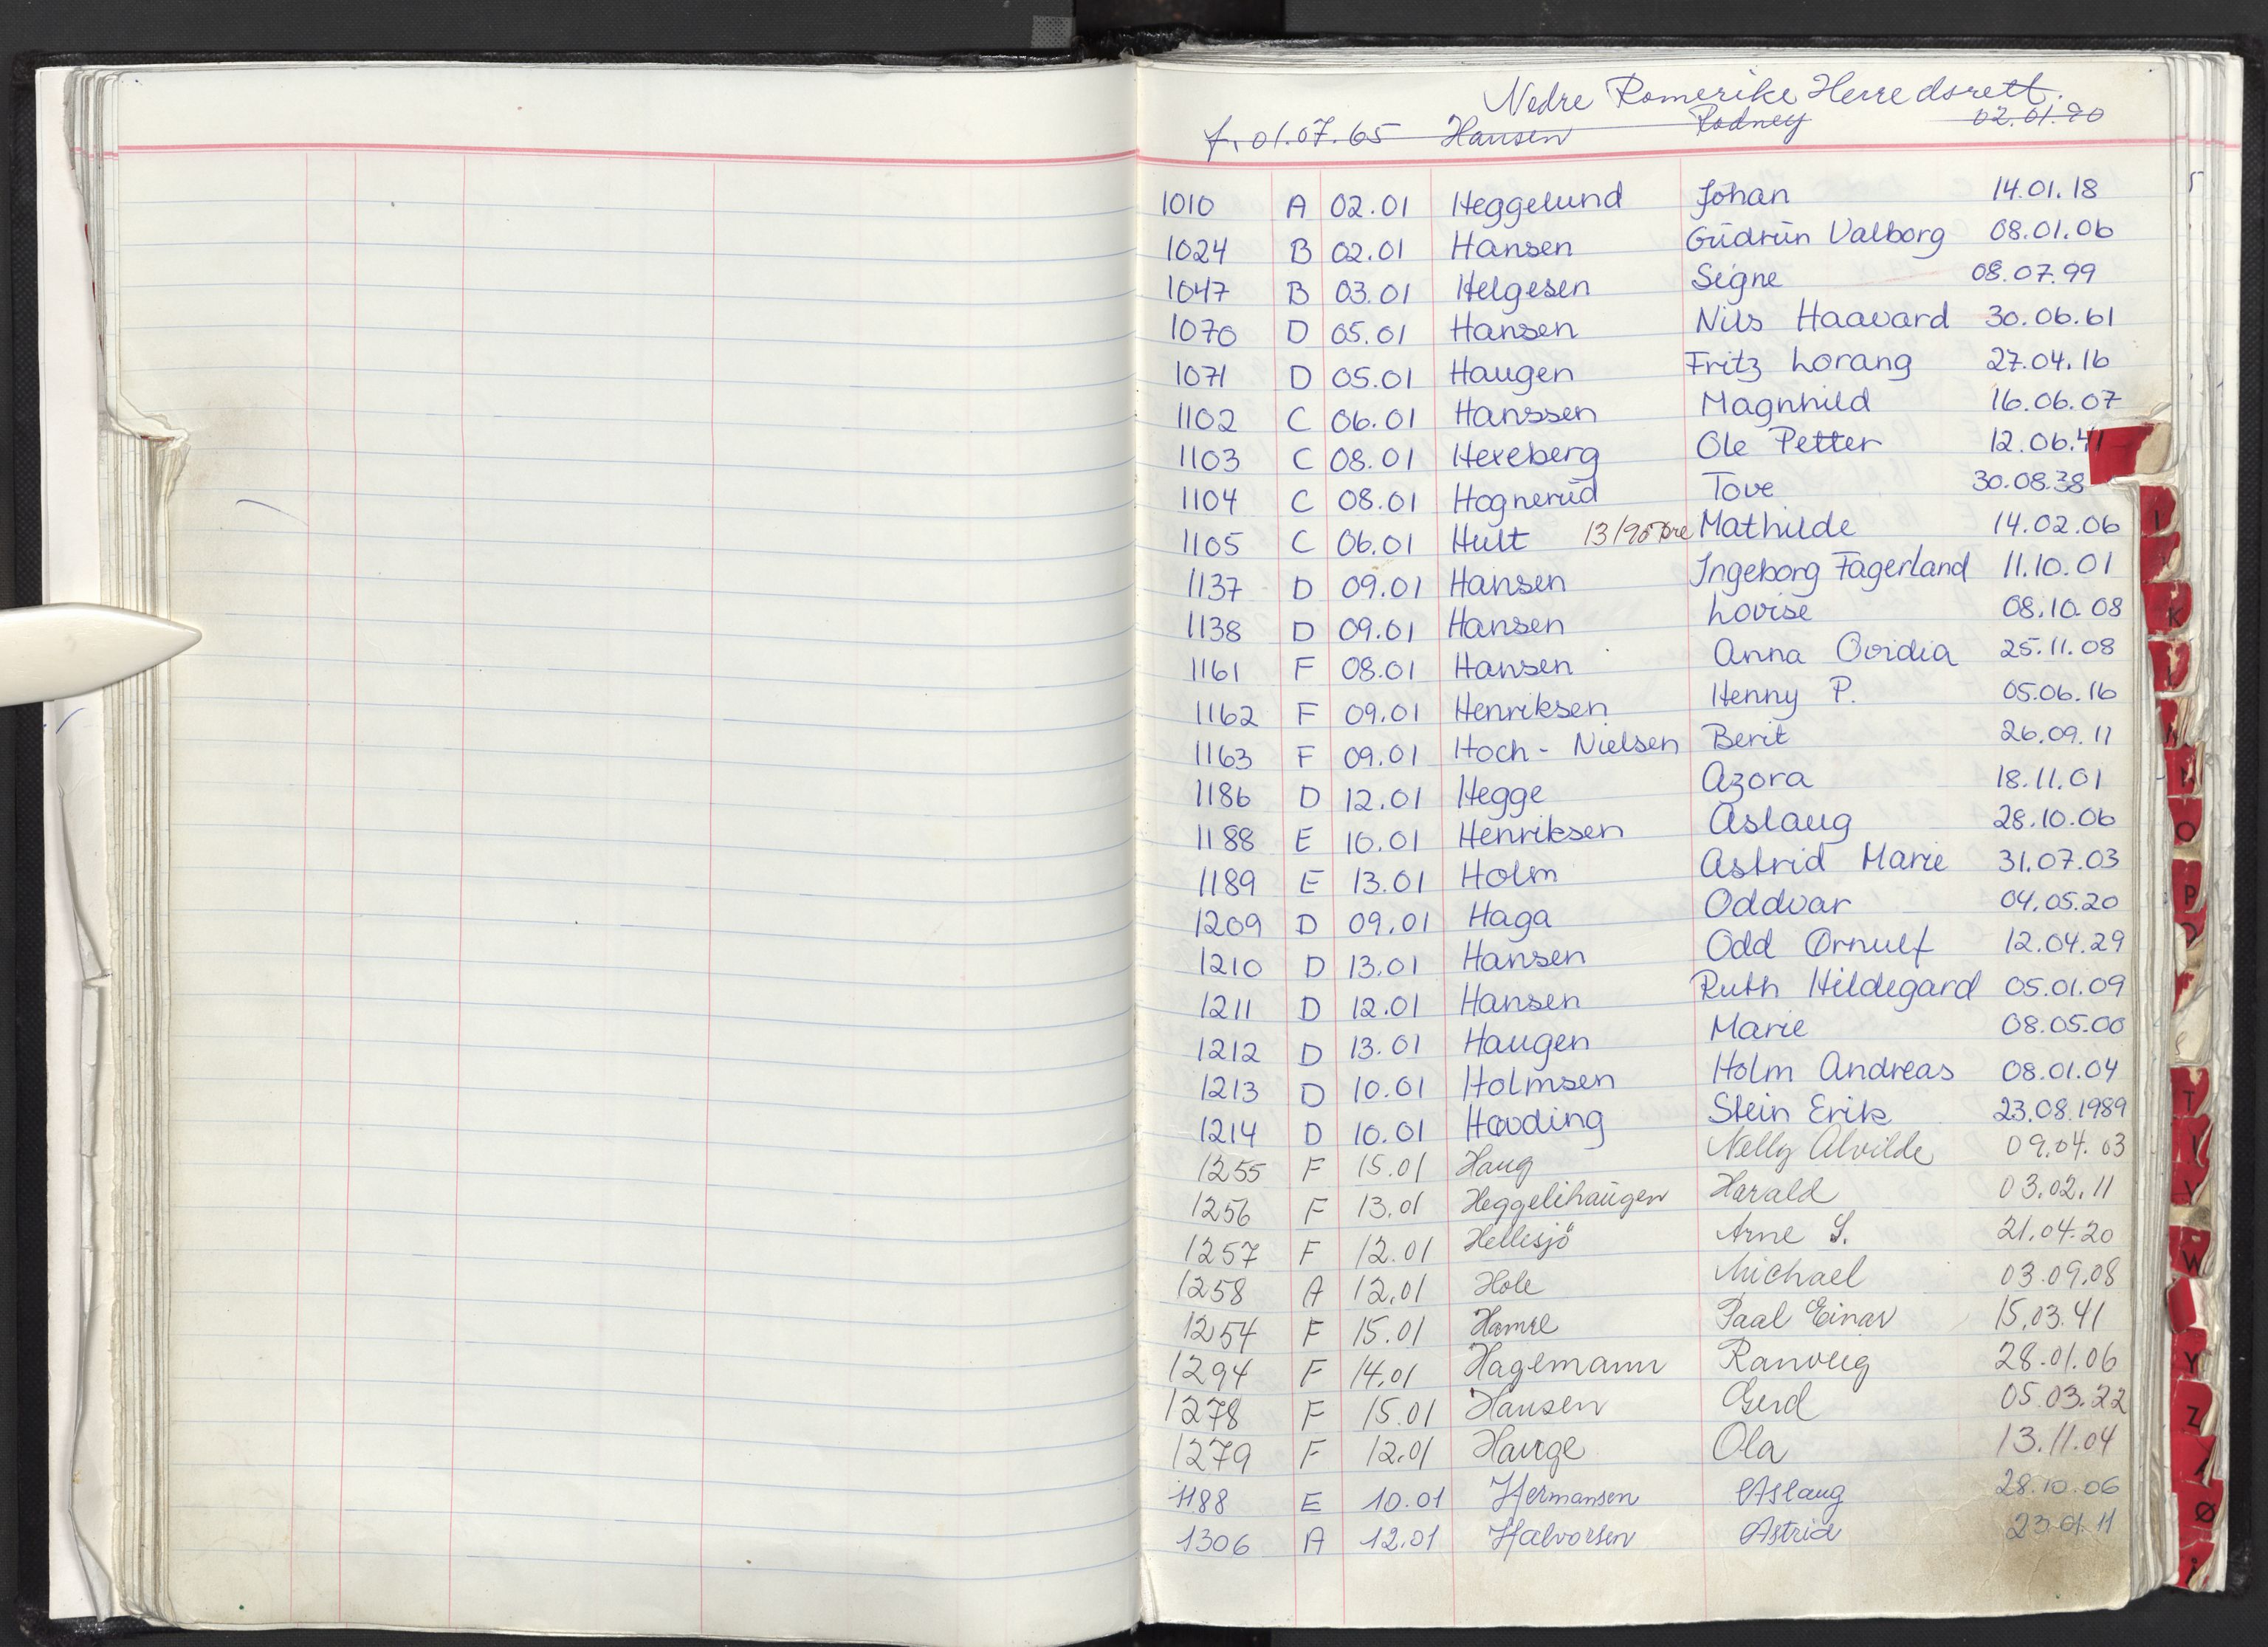 Nedre Romerike Herredsrett.
f. 01.07.65 Hansen Rodney 02.01.90
1010 A 02.01 Heggelund Johan 14.01.18
1024 B 02.01 Hansen Gudrun Valborg 08.01.06
1047 B 03.01 Helgesen Signe 08.07.99
1070 D 05.01 Hansen Nils Haavard 30.06.61
1071 D 05.01 Haugen Fritz Lorang 27.04.16
1102 C 06.01 Hanssen Magnhild 16.06.07
1103 C 08.01 Hexeberg Ole Petter 12.06.41
1104 C 08.01 Hognerud Tove 30.08.38
1105 C 06.01 Hult 13/90 Mathilde 14.02.06
1137 D 09.01 Hansen Ingeborg Fagerland 11.10.01
1138 D 09.01 Hansen Lovise 08.10.08
1161 F 08.01 Hansen Anna Ovidia 25.11.08
1162 F 09.01 Henriksen Henny P. 05.06.16
1163 F 09.01 Hoch-Nielsen Berit 26.09.11
1186 D 12.01 Hegge Azora 18.11.01
1188 E 10.01 Henriksen Aslaug 28.10.06
1189 E 13.01 Holm Astrid Marie 31.07.03
1209 D 09.01 Haga Oddvar 04.05.20
1210 D 13.01 Hansen Odd Ørnulf 12.04.29
1211 D 12.01 Hansen Ruth Hildegard 05.01.09
1212 D 13.01 Haugen Marie 08.05.00
1213 D 10.01 Holmsen Holm Andreas 08.01.04
1214 D 10.01 Hovding Stein Erik 23.08.1989
1255 F 15.01 Haug Nelly Alvilde 09.04.03
1256 F 13.01 Heggelihaugen Harald 03.02.11
1257 F 12.01 Hellesjö Arne S. 21.04.20
1258 A 12.01 Hole Michael 03.09.08
1254 F 15.01 Hamre Paal Einar 15.03.41
1294 F 14.01 Hagemann Ranveig 28.01.06
1278 F 15.01 Hansen Gerd 05.03.22
1279 F 12.01 Hauge Ola 13.11.04
1188 E 10.01 Hermansen Aslaug 28.10.06
1306 A 12.01 Halvorsen Astrid 23.01.11
K
O
P
T
W
Y
Z
Ø